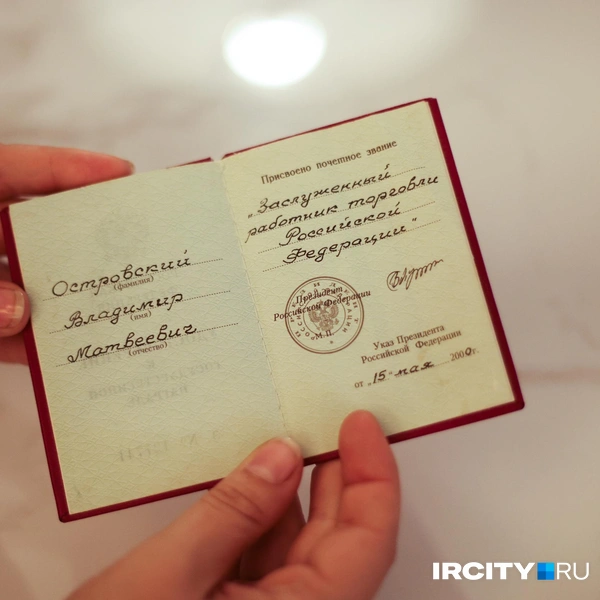 Островский
(фамилия)
Владимир
(имя)
Матвеевич
(отчество)
Присвоено почетное звание
„Заслуженный
работник торговли
Российской
Федерации"
Президент
Российской Федерации
М.П.
Указ Президента
Российской Федерации
от „15" мая 2000г.
IRCITY.RU